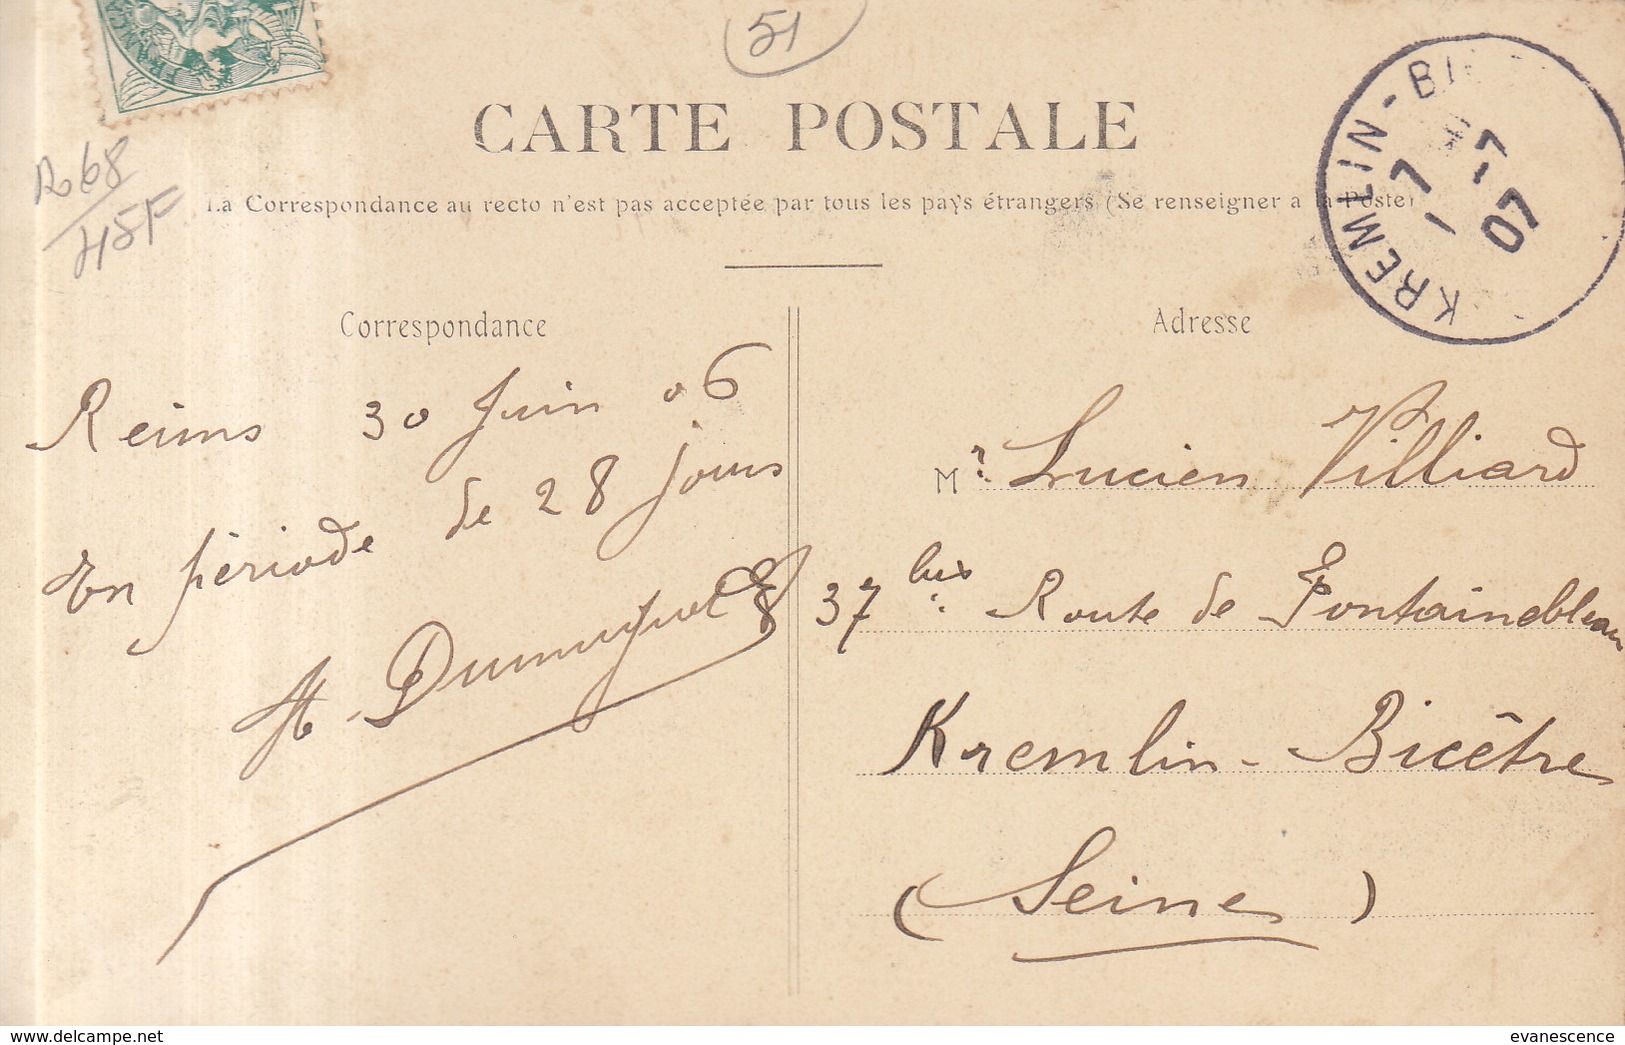 51
CARTE POSTALE
La Correspondance au recto n'est pas acceptée par tous les pays étrangers (Se renseigner a la Poste)
KREMLIN-BI
7 -7
07
Correspondance
Reims 30 Juin 06
En période de 28 jours
Adresse
Mr. Lucien Villiard
37 bis Route de Fontainebleau
Kremlin-Bicêtre
(Seine)
www.delcampe.net
evanescence